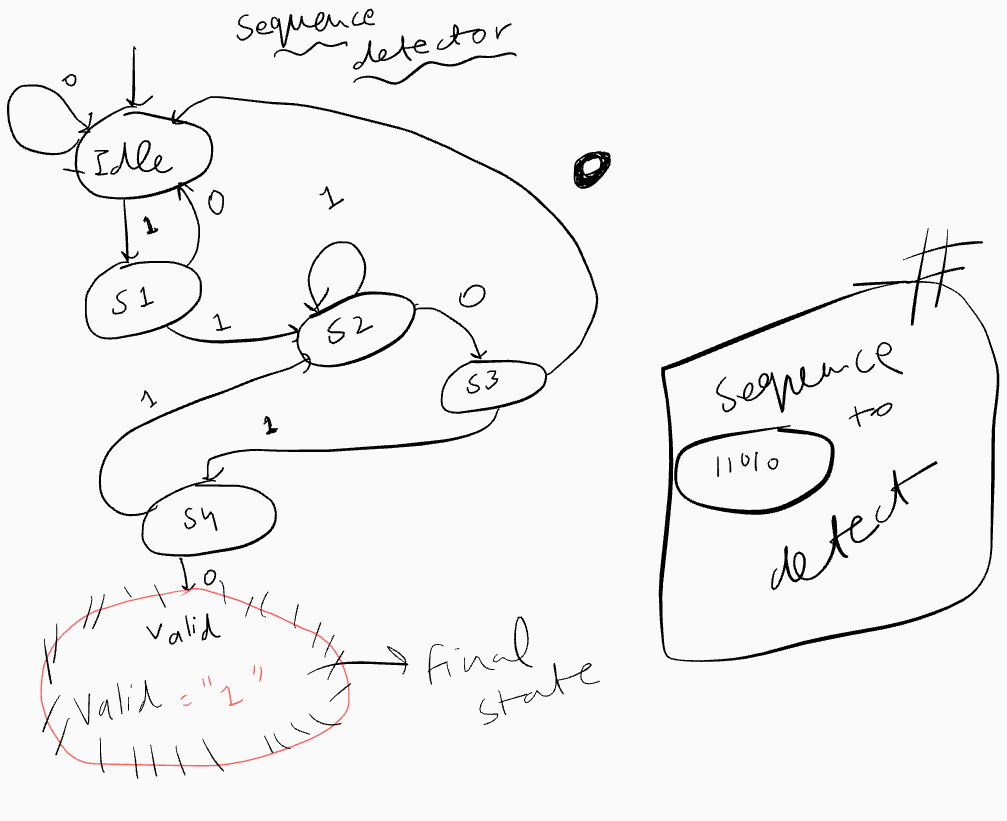 Sequence
detector
0
Idle
1
0
S1
1
1
S2
0
S3
1
1
S4
0
Valid
Valid = "1"
Final
state
#
Sequence
to
11010
detect